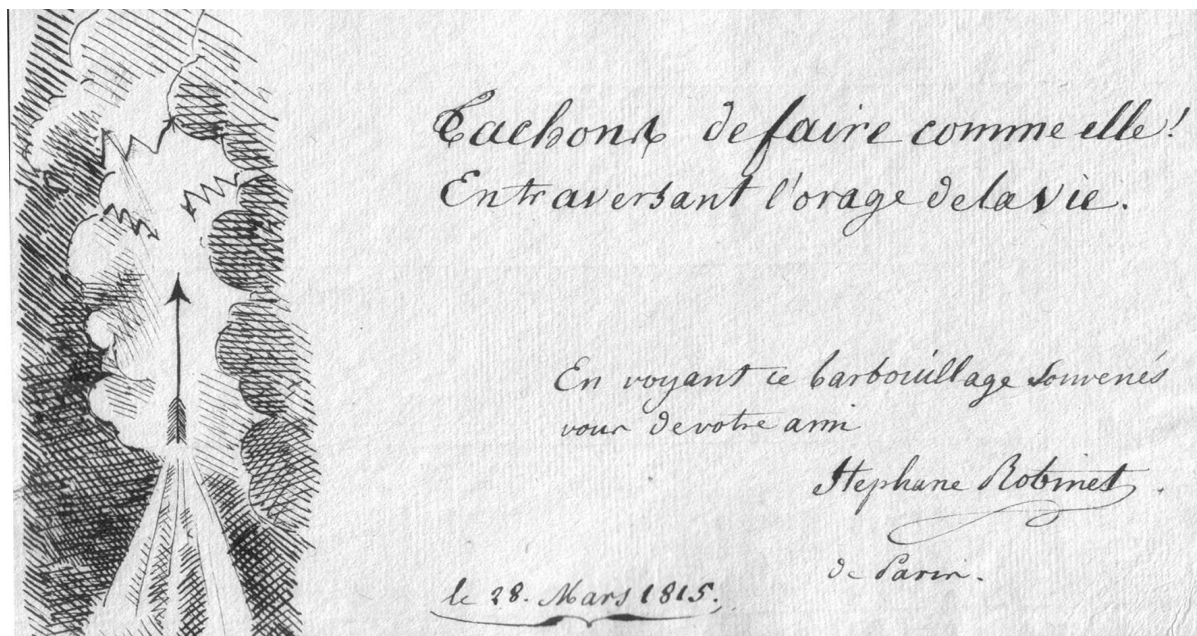 Tachons de faire comme elle!
En traversant l'orage de la vie.
En voyant ce barbouillage souvenés
vous de votre ami
Stephane Robinet.
de Paris.
le 28. Mars 1815.